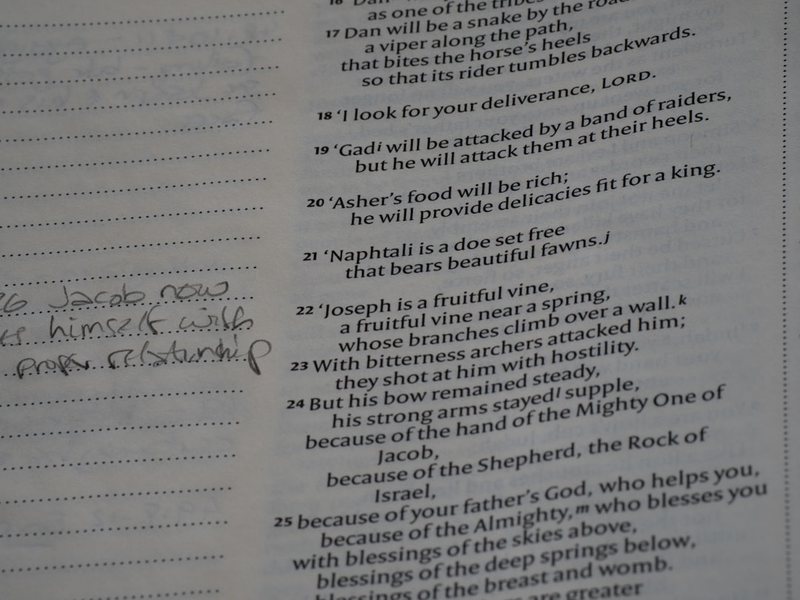 Jacob now
himself with
proper relationship
as one of the tribes
17 Dan will be a snake by the road
a viper along the path,
that bites the horse's heels
so that its rider tumbles backwards.
18 ‘I look for your deliverance, LORD.
19 ‘Gad i will be attacked by a band of raiders,
but he will attack them at their heels.
20 ‘Asher's food will be rich;
he will provide delicacies fit for a king.
21 ‘Naphtali is a doe set free
that bears beautiful fawns. j
22 ‘Joseph is a fruitful vine,
a fruitful vine near a spring,
whose branches climb over a wall. k
23 With bitterness archers attacked him;
they shot at him with hostility.
24 But his bow remained steady,
his strong arms stayed l supple,
because of the hand of the Mighty One of
Jacob,
because of the Shepherd, the Rock of
Israel,
25 because of your father's God, who helps you,
because of the Almighty, m who blesses you
with blessings of the skies above,
blessings of the deep springs below,
blessings of the breast and womb.
are greater